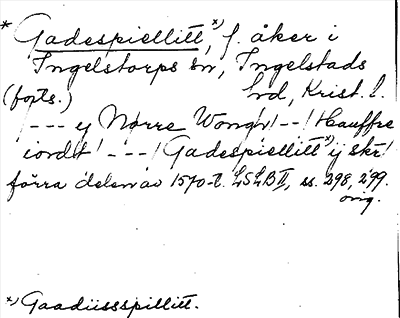 * Gadespiellitt*), f. åker i
Ingelstorps sn, Ingelstads
(forts.) hrd, Krist. l.
/--- ey Nørre Wongh/--/ Hauffre
iordt/ ---/ Gadespiellitt*) ij skr/
förra delen av 1570-t. LSLB II, ss. 298, 299.
orig.
*) Gaadiissspillitt.